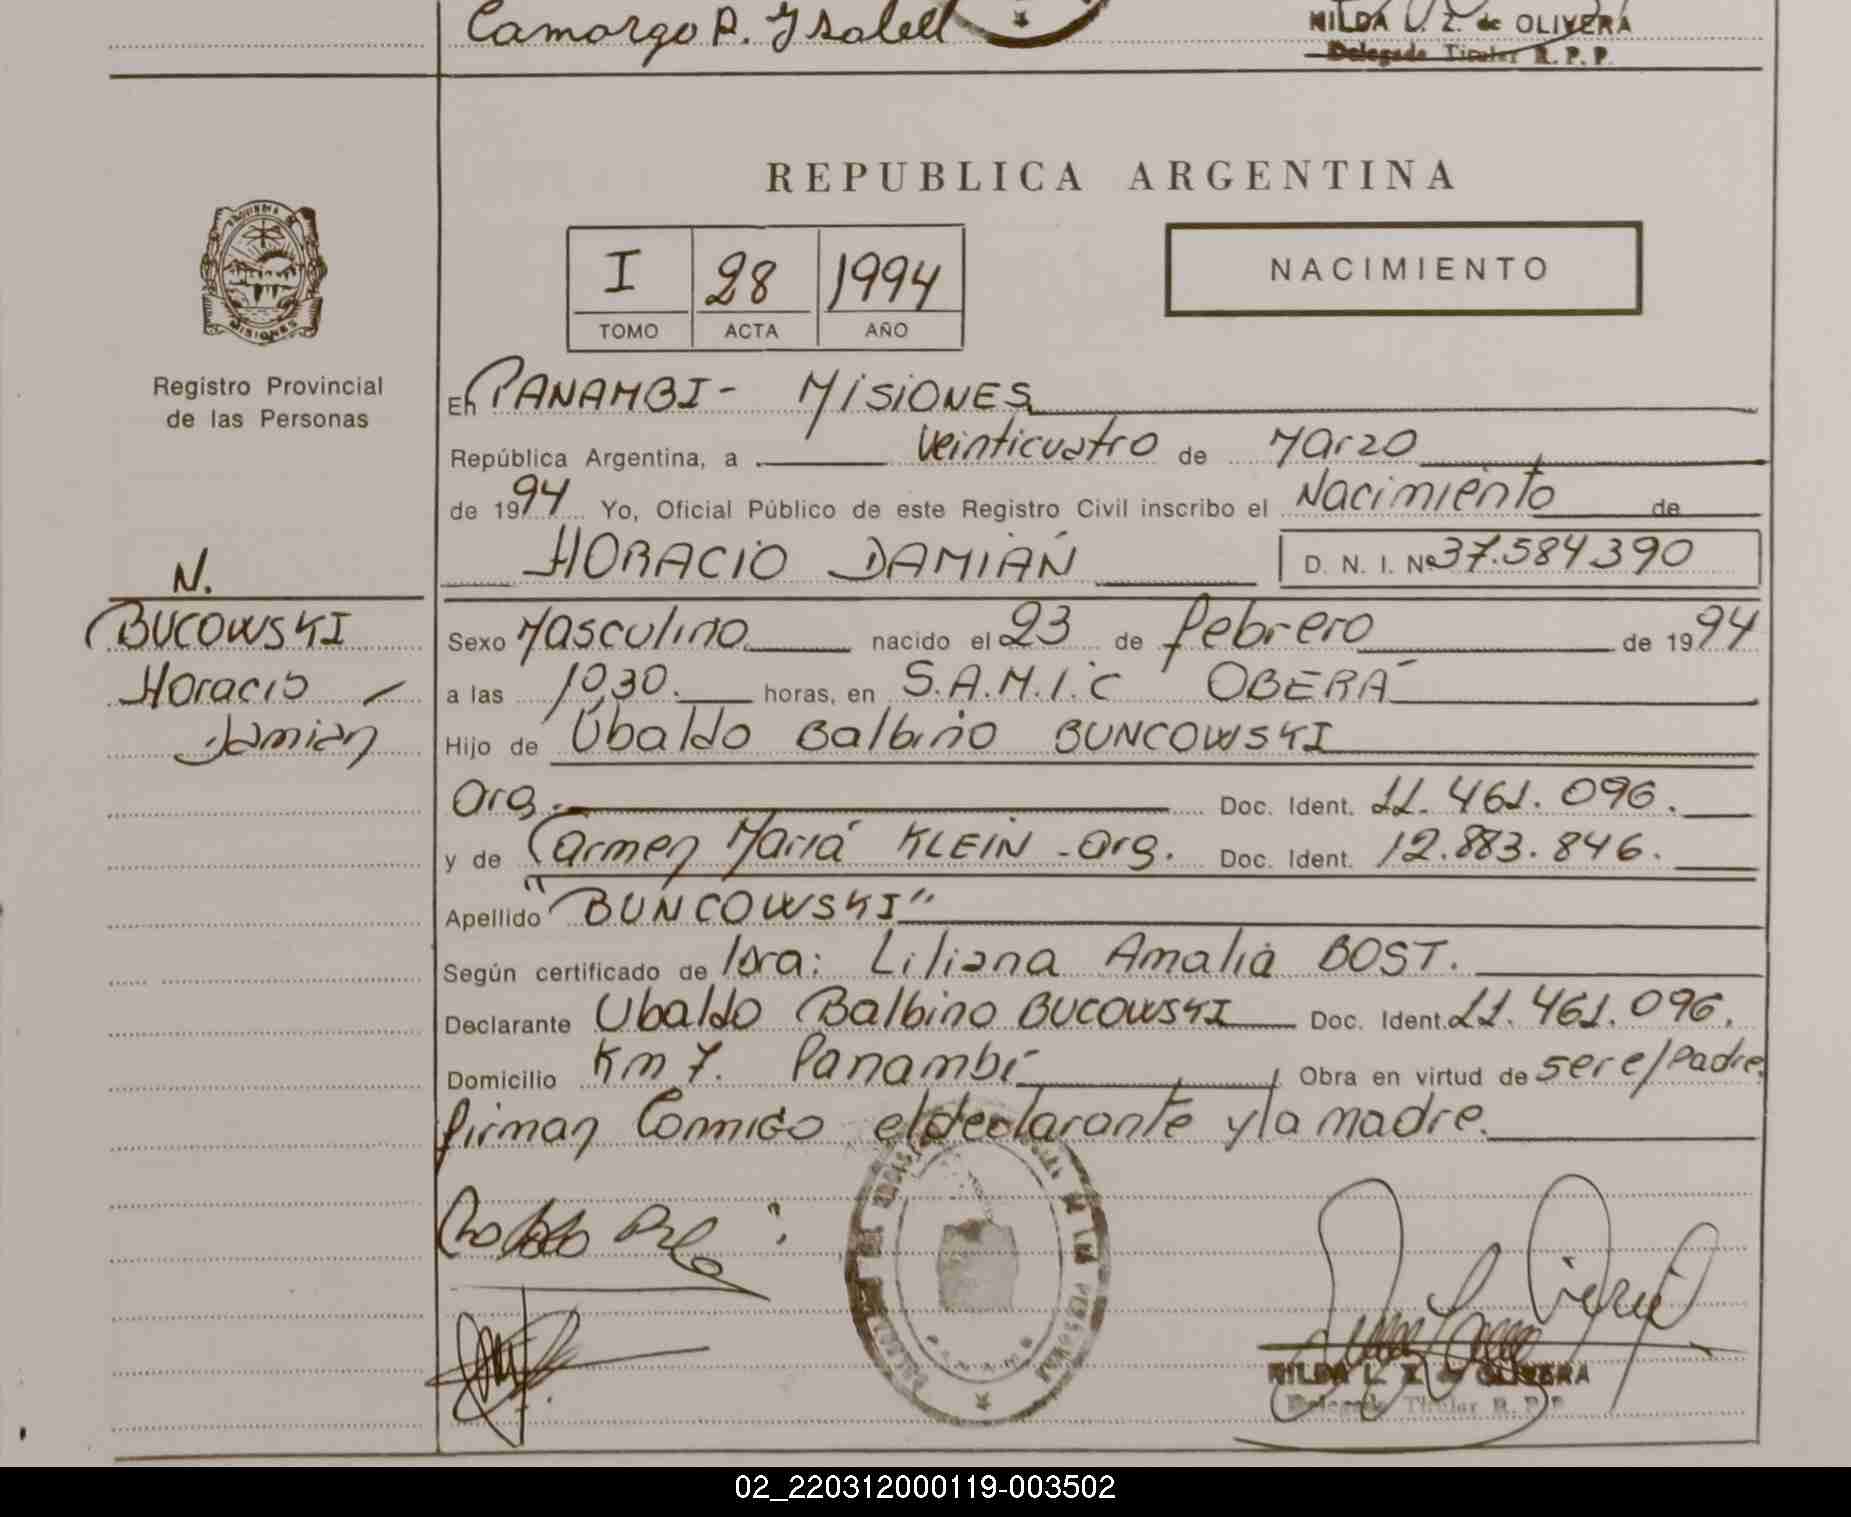 Camargo R. Ysabell
HILDA L. Z. de OLIVERA
Delegada Titular R. P. P.
REPUBLICA ARGENTINA
I 28 1994
TOMO ACTA AÑO
NACIMIENTO
MISIONES
Registro Provincial
de las Personas
En PANAMBI - MISIONES
República Argentina, a veinticuatro de Marzo
de 1994 Yo, Oficial Público de este Registro Civil inscribo el Nacimiento de
HORACIO DAMIÁN D. N. I. Nº 37.584390
N.
BUCOWSKI
Horacio
Damian
Sexo Masculino nacido el 23 de febrero de 1994
a las 10,30. horas, en S.A.M.I.C OBERÁ
Hijo de Ubaldo Balbino BUNCOWSKI
Arg. Doc. Ident. 11.461.096.
y de Carmen María KLEIN - Arg. Doc. Ident. 12.883.846.
Apellido "BUNCOWSKI"
Según certificado de Dra: Liliana Amalia BOST.
Declarante Ubaldo Balbino BUCOWSKI Doc. Ident. 11.461.096.
Domicilio Km 7. Panambí Obra en virtud de ser e/padre
firman Conmigo el declarante y la madre.
HILDA L. Z. de OLIVERA
Delegada Titular R. P. P.
02_220312000119-003502